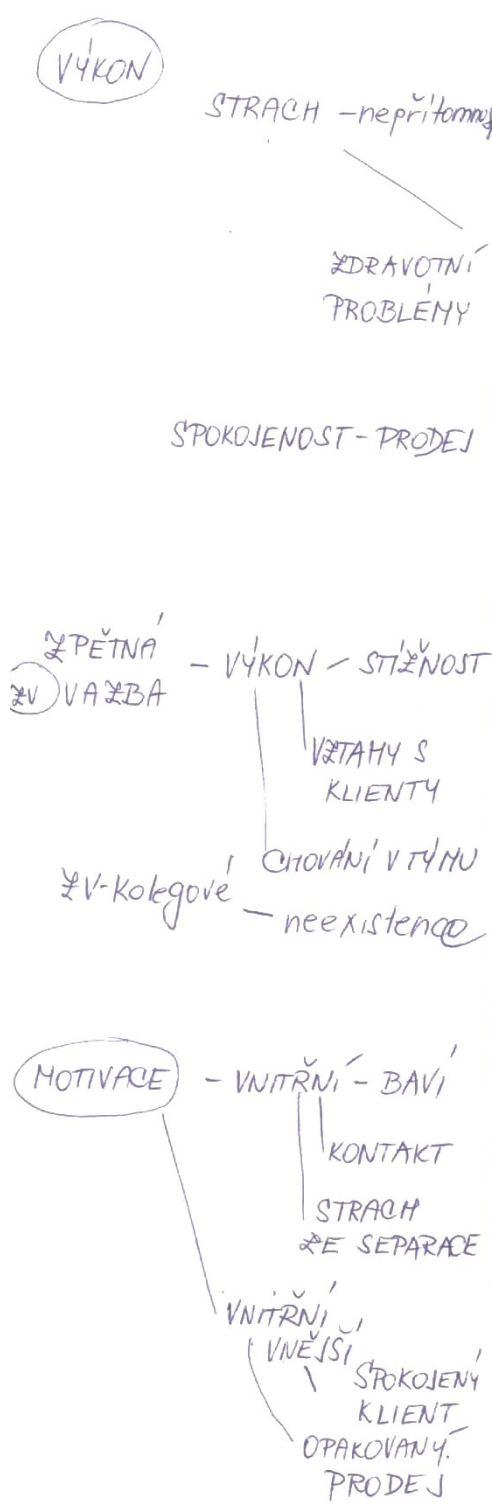 VÝKON
STRACH - nepřítomnos
ZDRAVOTNÍ
PROBLÉMY
SPOKOJENOST - PRODEJ
ZPĚTNÁ
ZV VAZBA - VÝKON - STÍŽNOST
VZTAHY S
KLIENTY
CHOVÁNÍ V TÝMU
ZV - Kolegové
- neexistence
MOTIVACE - VNITŘNÍ - BAVÍ
KONTAKT
STRACH
ZE SEPARACE
VNITŘNÍ
VNĚJŠÍ
SPOKOJENÝ
KLIENT
OPAKOVANÝ
PRODEJ